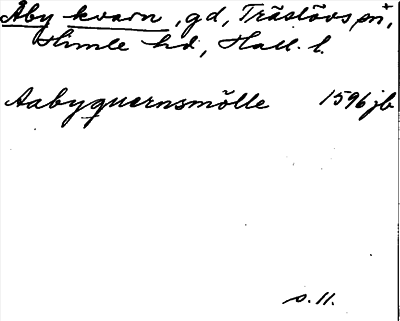 Åby kvarn, gd, Träslövs sn,
Himle hd, Hall. l.
Aabyquernsmölle 1596 jb
s. 11.